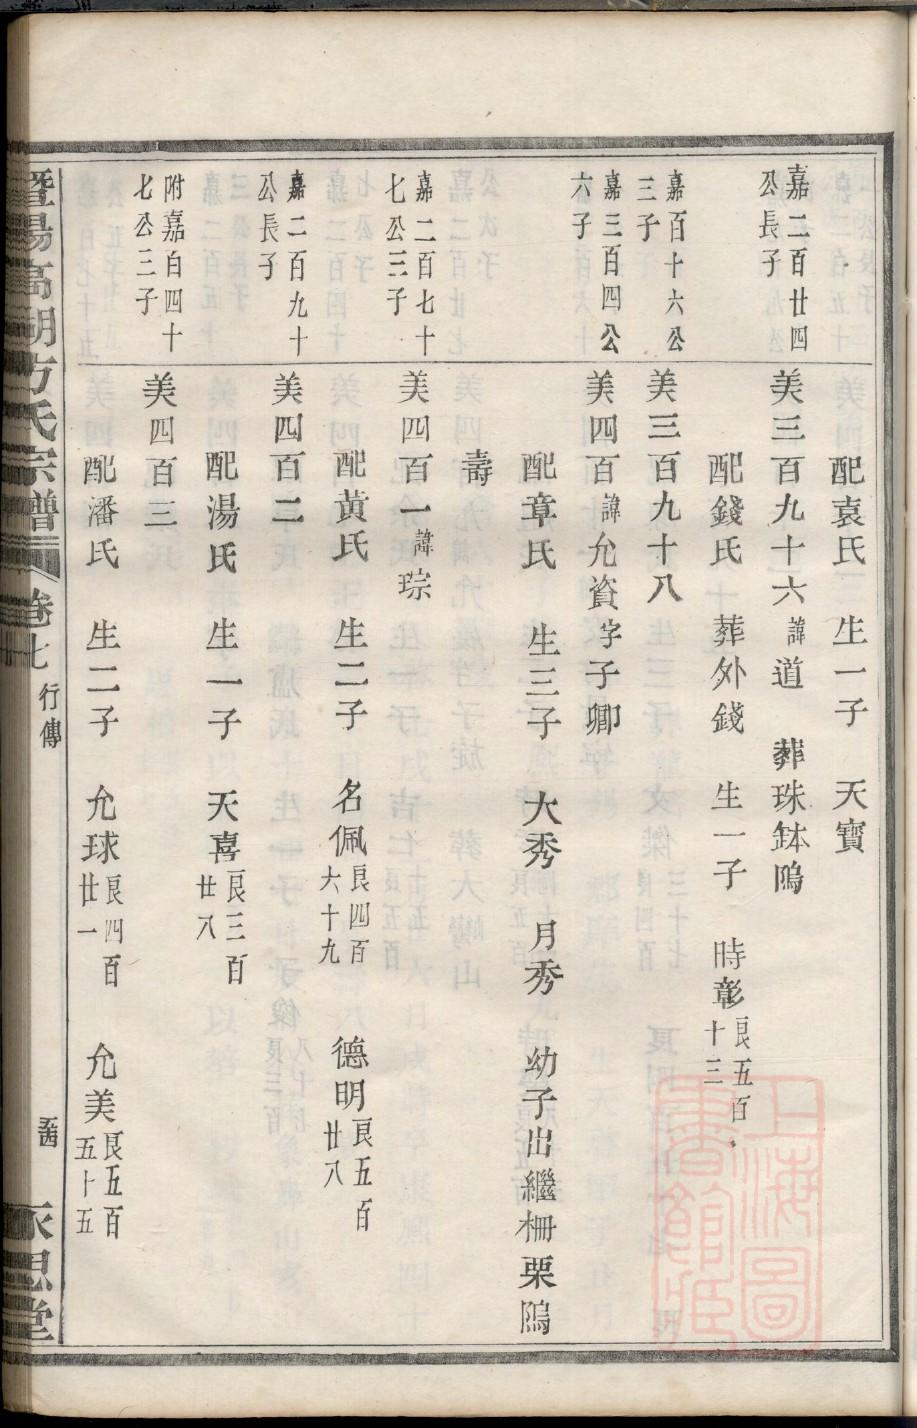 配袁氏 生一子 天寶
嘉二百廿四公長子
美三百九十六諱道 葬珠缽隝
配錢氏 葬外錢 生一子 時彰良五百十三
嘉百十六公三子
美三百九十八
嘉三百四公六子
美四百諱允資字子卿
配章氏 生三子 大秀 月秀 幼子出繼栅栗隝
壽
嘉二百七十七公三子
美四百一諱琮
配黃氏 生二子 名佩良四百六十九 德明良五百廿八
嘉二百九十公長子
美四百二
配湯氏 生一子 天喜良三百廿八
附嘉百四十七公三子
美四百三
配潘氏 生二子 允球良四百廿一 允美良五百五十五
暨陽高湖方氏宗譜 卷七 行傳 永思堂
上海圖書館藏